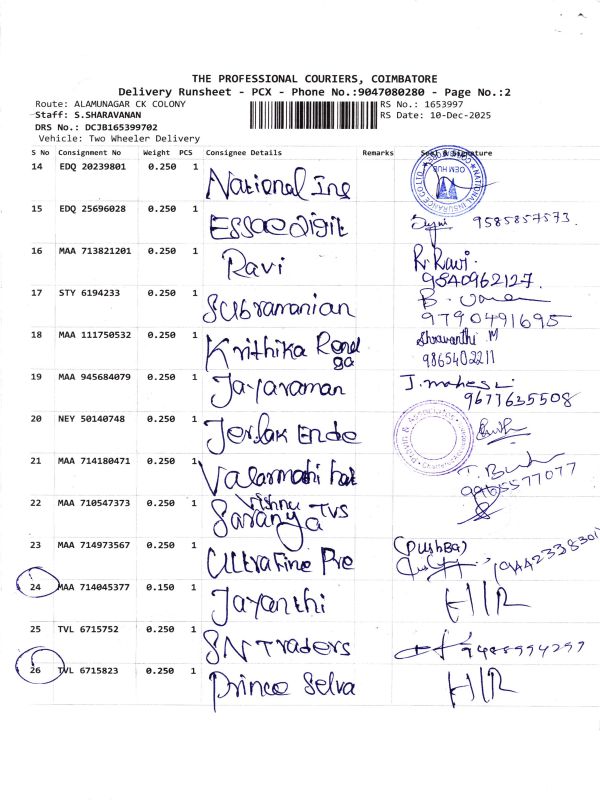 THE PROFESSIONAL COURIERS, COIMBATORE
Delivery Runsheet - PCX - Phone No.:9047080280 - Page No.:2
Route: ALAMUNAGAR CK COLONY RS No.: 1653997
Staff: S.SHARAVANAN RS Date: 10-Dec-2025
DRS No.: DCJB165399702
Vehicle: Two Wheeler Delivery
S No Consignment No Weight PCS Consignee Details Remarks Seal & Signature
14 EDQ 20239801 0.250 1 National Ins
15 EDQ 25696028 0.250 1 Essae Digit 9585857573
16 MAA 713821201 0.250 1 Ravi R. Ravi.
9540962127.
17 STY 6194233 0.250 1 Subramanian B.
9790491695
18 MAA 111750532 0.250 1 Krithika Rend Shravanthi M
ga 9865402211
19 MAA 945684079 0.250 1 Jayaraman J. mahesi
9677635508
20 NEY 50140748 0.250 1 Jerlak Ende
21 MAA 714180471 0.250 1 Valarmathi T.
22 MAA 710547373 0.250 1 Vishnu
Saranya TVS
23 MAA 714973567 0.250 1 Ultra Fine Pre (Pushba)
24 MAA 714045377 0.150 1 Jayanthi H/R
25 TVL 6715752 0.250 1 SN Traders
26 TVL 6715823 0.250 1 Prince Selva H/R